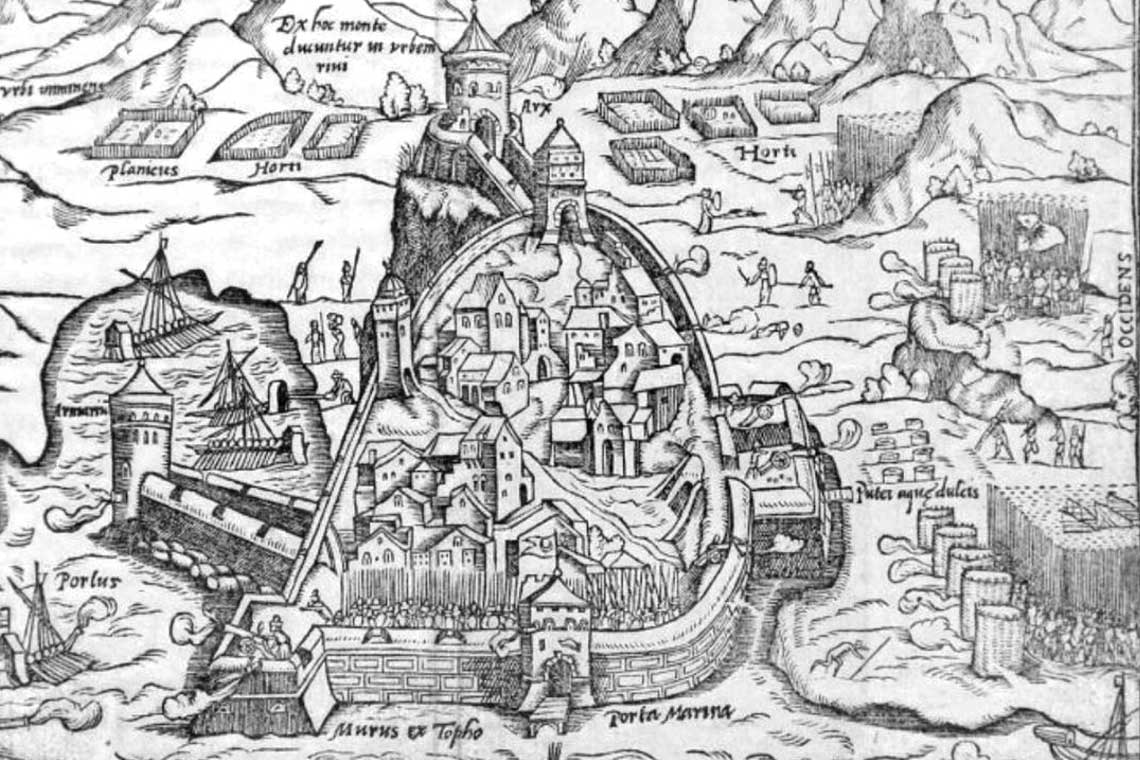 Ex hoc monte
ducuntur in vrbem
riui
vrbi imminens
Arx
Planicus
Horti
Horti
OCCIDENS
Putei aque dulcis
Portus
Murus ex Topho
Porta Marina